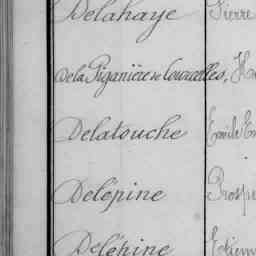 Delahaye Pierre
De la Piganière de Courcelles,
Delatouche Emile
Delépine Prosp
Delépine Etienn